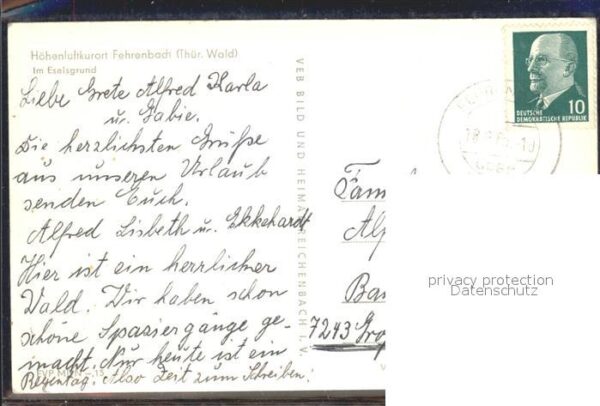 Höhenluftkurort Fehrenbach (Thür. Wald)
Im Eselsgrund
Liebe Grete Alfred Karla
u. Gabie.
Die herzlichsten Grüße
aus unseren Urlaub
senden Euch.
Alfred Lisbeth u. Ekkehardt
Hier ist ein herrlicher
Wald. Wir haben schon
schöne Spaziergänge ge-
macht. Nur heute ist ein
Regentag. Also Zeit zum Schreiben!
VEB BILD UND HEIMAT REICHENBACH I. V.
10
DEUTSCHE
DEMOKRATISCHE REPUBLIK
Fam
Alf
Ba
7243 Gro
privacy protection
Datenschutz